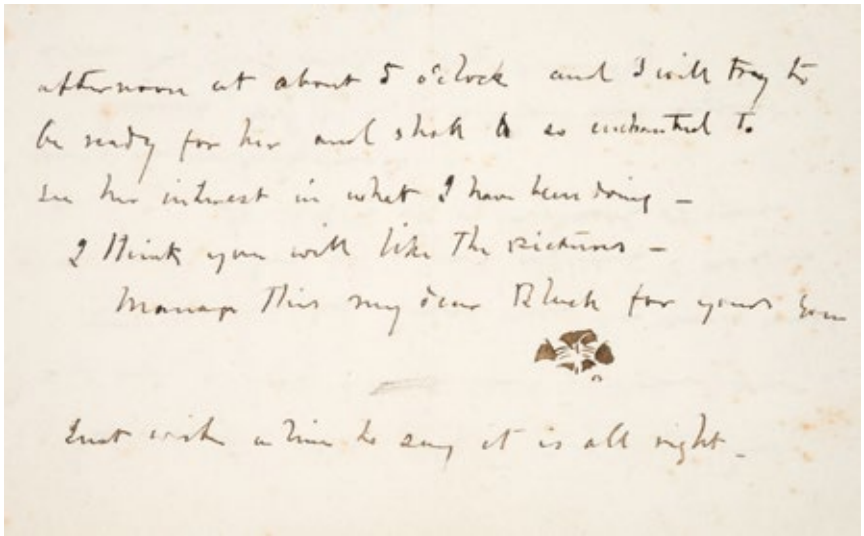 afternoon at about 5 o'clock and I will try to
be ready for her and shall be so enchanted to
see her interest in what I have been doing -
I think you will like the pictures -
Manage this my dear for yours
Just a line to say it is all right -